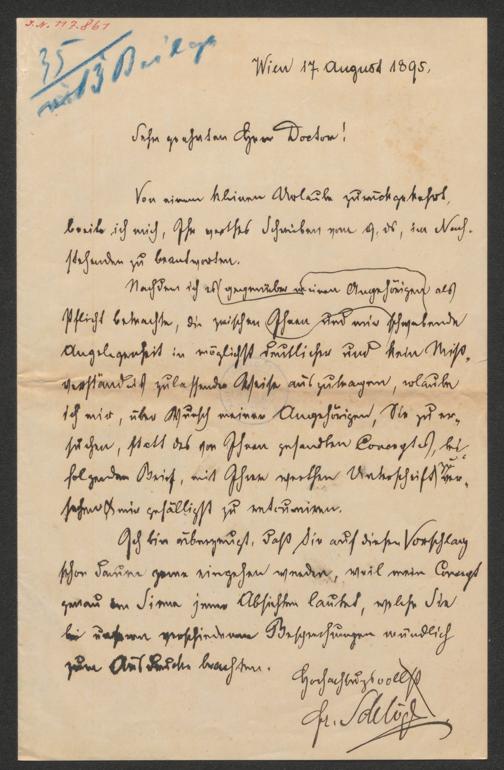 J.N. 117.861
35
mit 3 Beilagen
Wien 17. August 1895.
Sehr geehrter Herr Doctor!
Von einem kleinen Urlaube zurückgekehrt,
beeile ich mich, Ihr werthes Schreiben vom 9. ds, im Nach-
stehenden zu beantworten.
Nachdem ich es gegenüber meinen Angehörigen als
Pflicht betrachte, die zwischen Ihnen und mir schwebende
Angelegenheit in möglichst deutlicher und kein Miß-
verständniß zulassender Weise auszutragen, erlaube
ich mir, über Wunsch meiner Angehörigen, Sie zu er-
suchen, statt des von Ihnen gesandten Conceptes, bei-
folgenden Brief, mit Ihrer werthen Unterschrift ver-
sehen mir gefälligst zu retourniren.
Ich bin überzeugt, daß Sie auf diesen Vorschlag
schon darum gerne eingehen werden, weil mein Concept
genau im Sinne jener Absichten lautet, welche Sie
bei unseren verschiedenen Besprechungen mündlich
zum Ausdrucke brachten.
Hochachtungsvollst
Fr. Schlögl